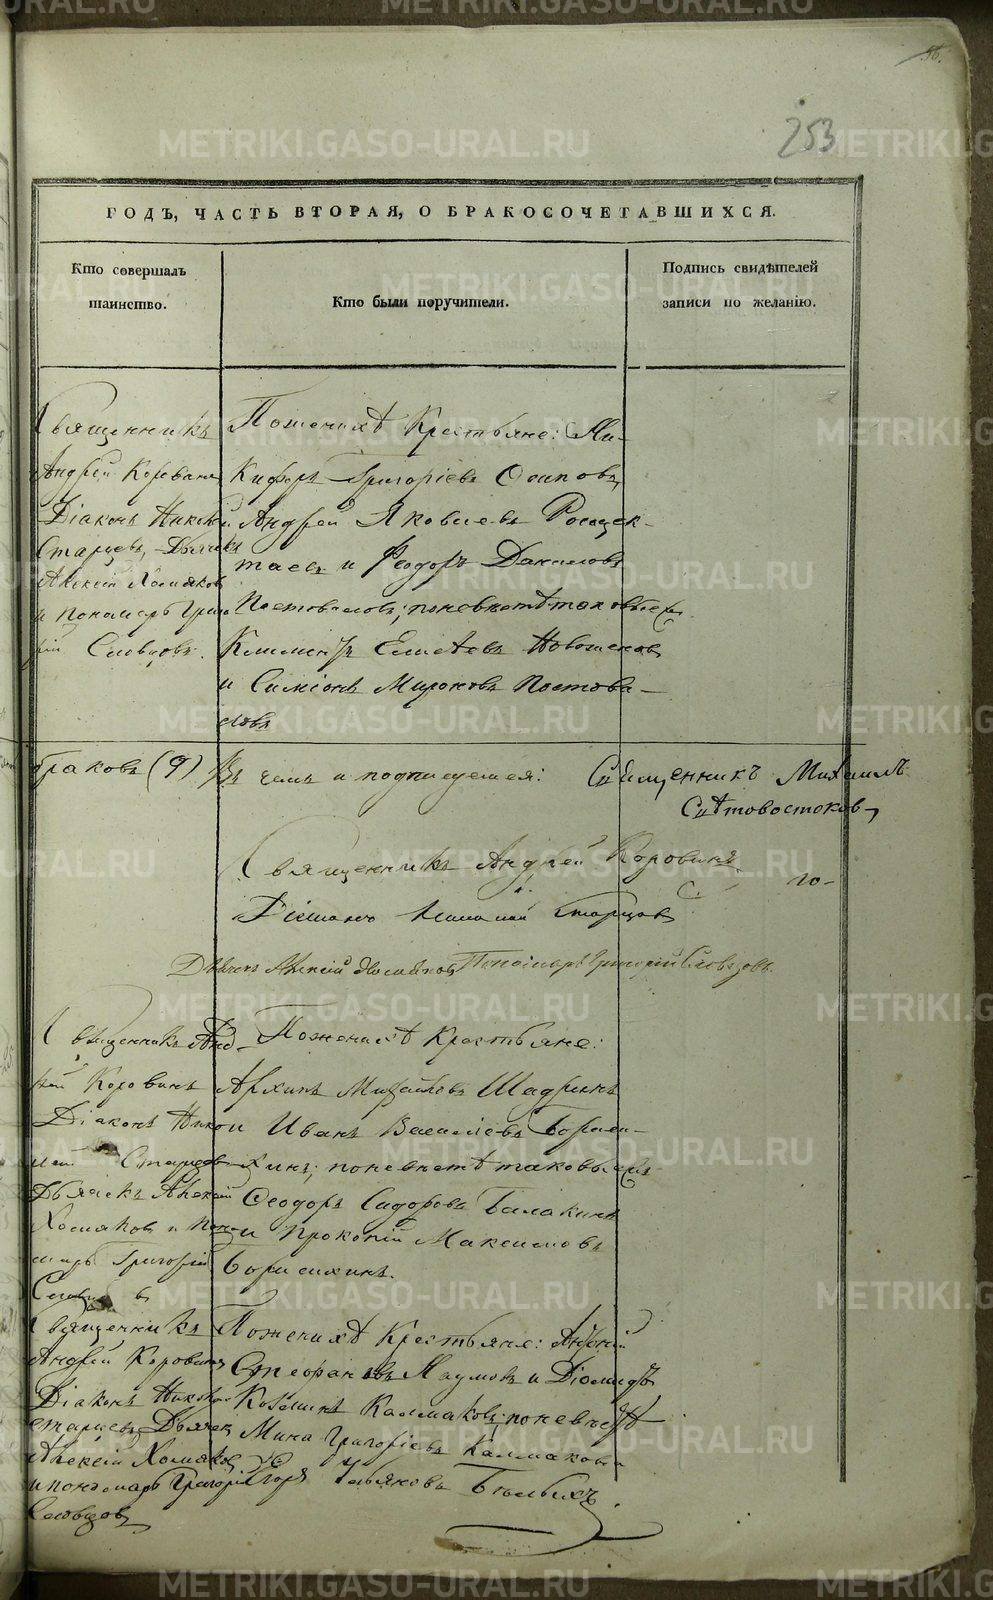 56.
253
ГОДЪ, ЧАСТЬ ВТОРАЯ, О БРАКОСОЧЕТАВШИХСЯ.
Кто совершалъ
таинство.
Кто были поручители.
Подпись свидѣтелей
записи по желанію.
Священникъ
Андрей Коровинъ
Діаконъ Николай
Старцевъ, Дьячекъ
Алексій Хомяковъ
и пономарь Григо
рій Словцовъ.
По женихѣ Крестьяне: Ни-
кифоръ Григоріевъ Осиповъ,
Андрей Яковлевъ
и Феодоръ Даниловъ
Постоваловъ; по невѣстѣ таковые
Климентъ Новоселовъ
и Симіонъ Мироновъ Постова-
ловъ
браковъ (9) Въ чемъ и подписуемся: Священникъ Михаилъ
Свѣтовостоковъ
Священникъ Андрей Коровинъ
Діаконъ Николай Старцовъ
Дьячекъ Алексій Хомяковъ Пономарь Григорій Словцовъ.
Священникъ Анд-
рей Коровинъ
Діаконъ Нико
лай Старцевъ
Дьячекъ Алексій
Хомяковъ и Поно
марь Григорій
Словцовъ
По женихѣ Крестьяне:
Архипъ Михайловъ Шадринъ
и Иванъ Васильевъ Бориси-
хинъ; по невѣстѣ таковые
Феодоръ Сидоровъ Балакинъ
и Прокопій Максимовъ
Борисихинъ.
Священникъ
Андрей Коровинъ
Діаконъ Николай
Старцевъ Дьячекъ
Алексій Хомяковъ
и пономарь Григорій
Словцовъ
По женихѣ Крестьяне: Андрей
Стефановъ Наумовъ и Діомидъ
Козминъ Калмаковъ; по невѣстѣ
Мина Григоріевъ Калмаковъ
Егоръ Бѣлыхъ.
METRIKI.GASO-URAL.RU